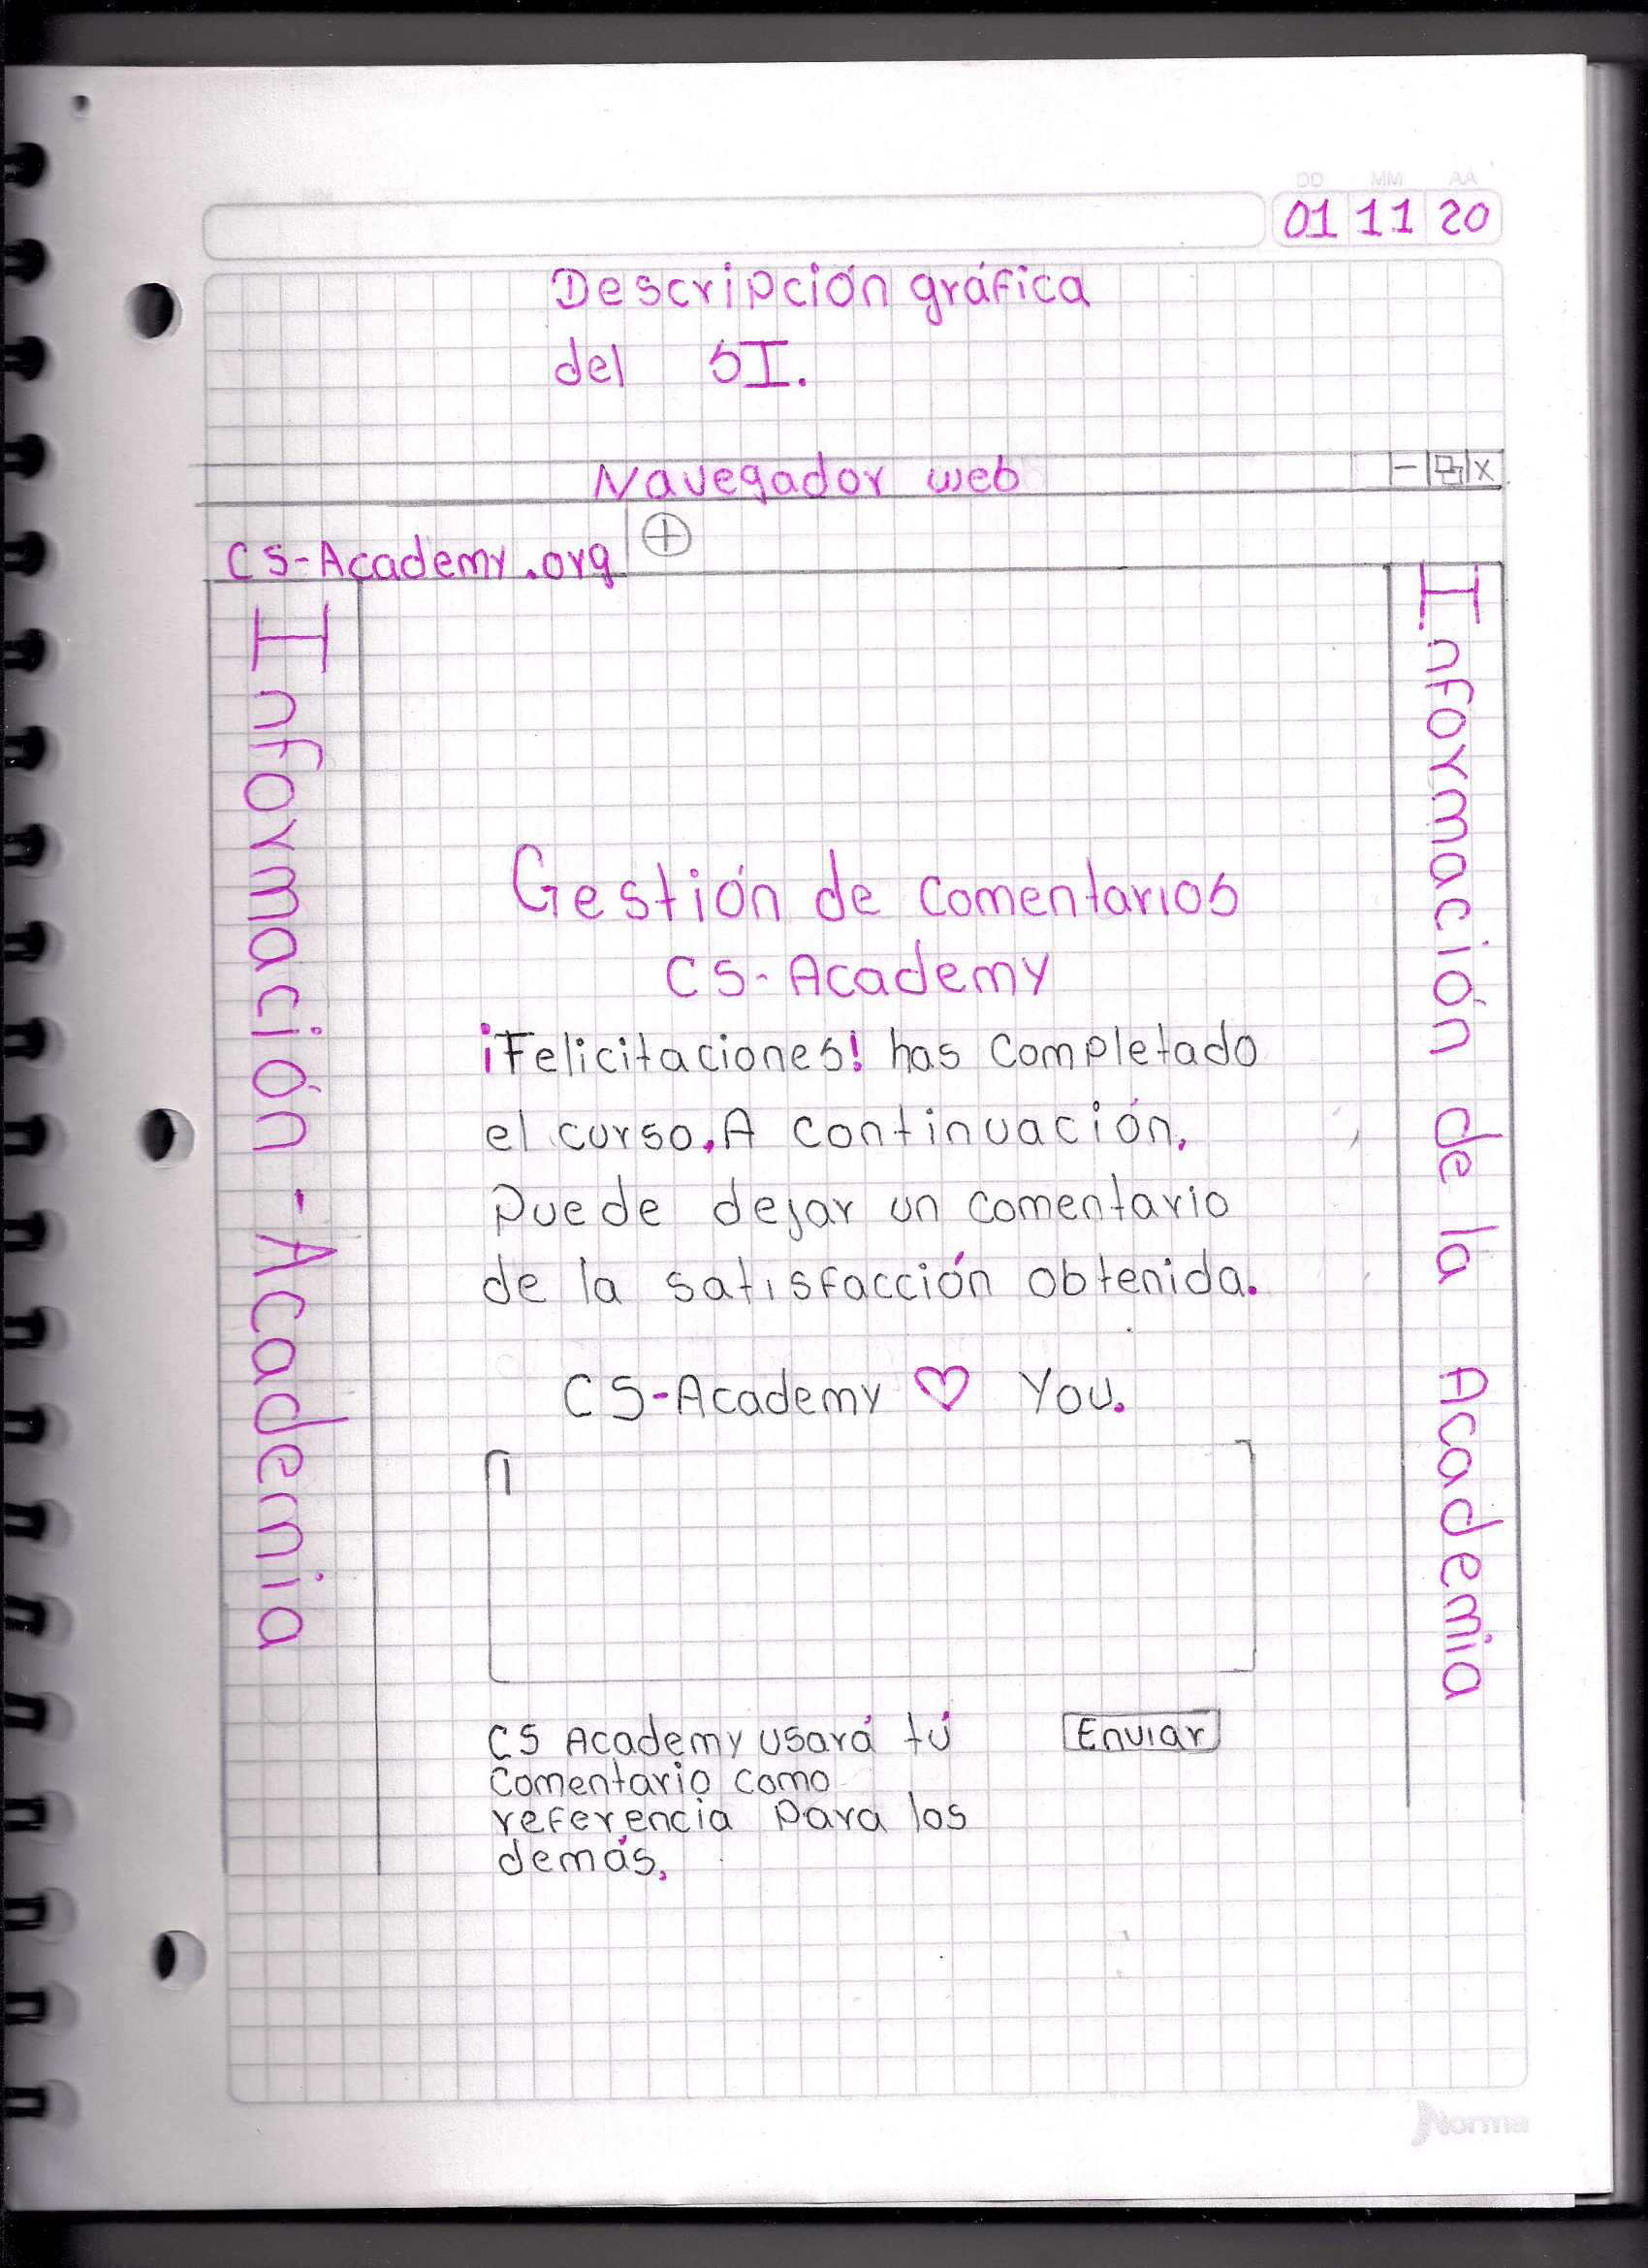 DD MM AA
01 11 20
Descripción gráfica
del SI.
Navegador web
- x
CS-Academy.org +
Información - Academia
Información de la Academia
Gestión de comentarios
CS-Academy
¡Felicitaciones! has completado
el curso. A continuación,
Puede dejar un comentario
de la satisfacción obtenida.
CS-Academy ♡ You.
CS Academy usará tú
Enviar
comentario como
referencia para los
demás.
Norma